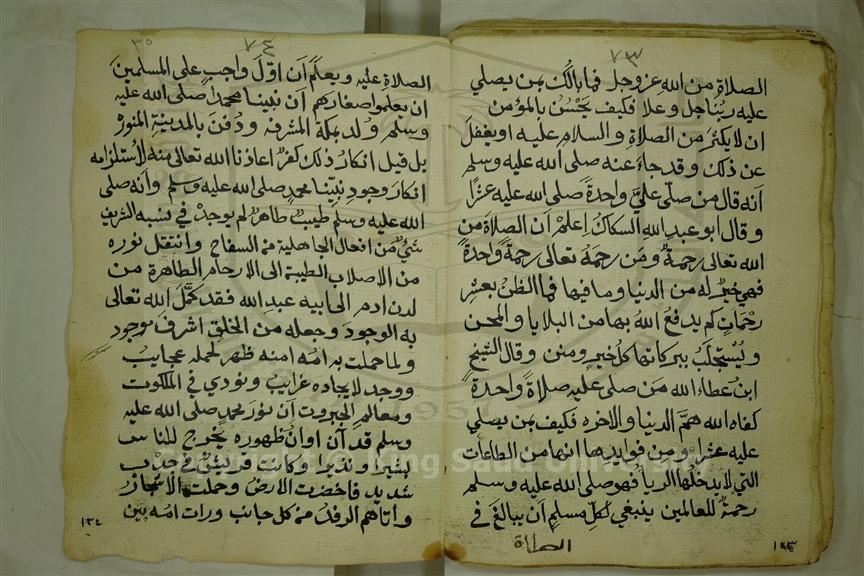 ٧٣
الصلاة من الله عز وجل فما بالك بمن يصلي
عليه ربنا جل وعلا فكيف يحسن بالمؤمن
ان لا يكثر من الصلاة والسلام عليه او يغفل
عن ذلك وقد جاء عنه صلى الله عليه وسلم
انه قال من صلى علي واحدة صلى الله عليه عشرا
وقال ابو عبد الله السكاك اعلم ان الصلاة من
الله تعالى رحمة ومن رحمه تعالى رحمة واحدة
فهي خير له من الدنيا وما فيها فما الظن بعشر
رحمات كم يدفع الله بها من البلايا والمحن
ويستجلب ببركاتها كل خير ومنن وقال الشيخ
ابن عطاء الله من صلى عليه صلاة واحدة
كفاه الله هم الدنيا والاخره فكيف بمن يصلي
عليه عشرا ومن فوايدها انها من الطاعات
التي لا يدخلها الريا فهو صلى الله عليه وسلم
رحمة للعالمين ينبغي لكل مسلم ان يبالغ في
الصلاة
٧٤
الصلاة عليه ويعلم ان اول واجب على المسلمين
ان يعلموا صغارهم ان نبينا محمدا صلى الله عليه
وسلم ولد بمكة المشرفه ودفن بالمدينة المنوره
بل قيل انكار ذلك كفر اعاذنا الله تعالى منه لاستلزامه
انكار وجود نبينا محمد صلى الله عليه وسلم وانه صلى
الله عليه وسلم طيب طاهر لم يوجد في نسبه الشريف
شيء من افعال الجاهلية من السفاح وانتقل نوره
من الاصلاب الطيبة الى الارحام الطاهرة من
لدن ادم الى ابيه عبد الله فقد كمل الله تعالى
به الوجود وجعله من الخلق اشرف موجود
ولما حملت به امه امنه ظهر لحمله عجايب
ووجد لايجاده غرايب ونودي في الملكوت
ومعالم الجبروت ان نور محمد صلى الله عليه
وسلم قد آن اوان ظهوره يخرج للناس
بشيرا ونذيرا وكانت قريش في جدب
شديد فاخضرت الارض وحملت الاشجار
واتاهم الرفد من كل جانب ورات امه بين
١٣٤